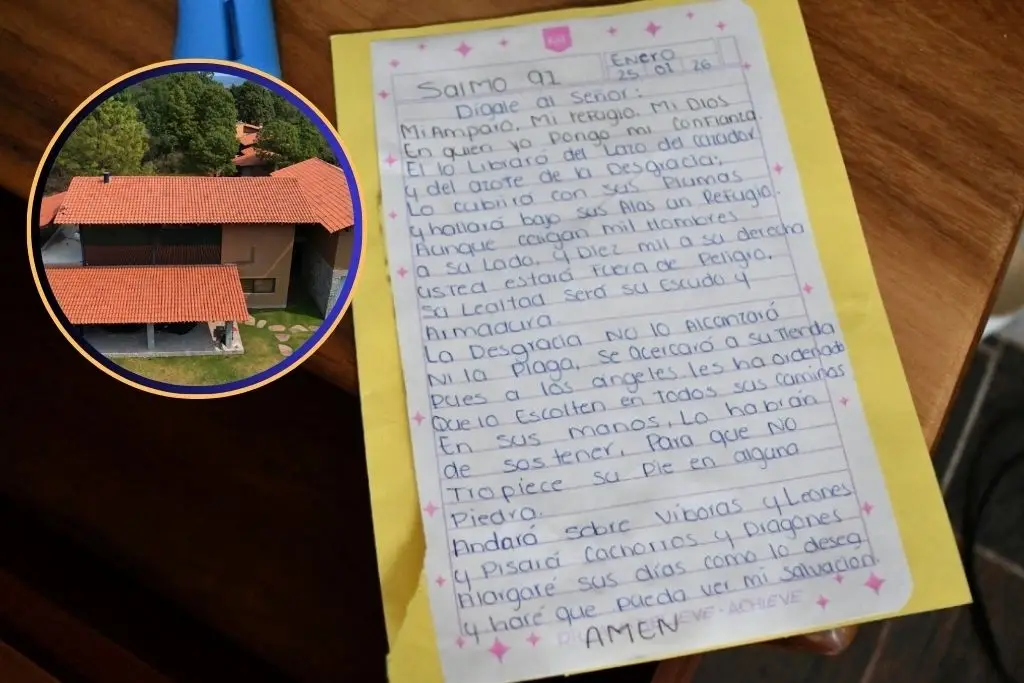 Salmo 91
Enero
25 01 26
Digale al Señor:
Mi Amparo, Mi refugio, Mi Dios
En quien yo Pongo mi confianza.
El lo Librará del Lazo del cazador
y del azote de la Desgracia;
Lo cubrirá con sus Plumas
y hallará bajo sus Alas un Refugio.
Aunque caigan mil Hombres
a su Lado, y Diez mil a su derecha
usted estará Fuera de Peligro.
Su Lealtad será su Escudo y
Armadura.
La Desgracia No lo Alcanzará
Ni la Plaga, se acercará a su Tienda
Pues a los angeles les ha ordenado
Que lo Escolten en Todos sus caminos
En sus manos, Lo habrán
de sostener, Para que NO
Tropiece su Pie en alguna
Piedra.
Andará sobre Viboras y Leones
y Pisará cachorros y Dragones
Alargaré sus días como lo deseg
y haré que pueda ver mi salvación.
EVE · ACHIEVE
AMEN